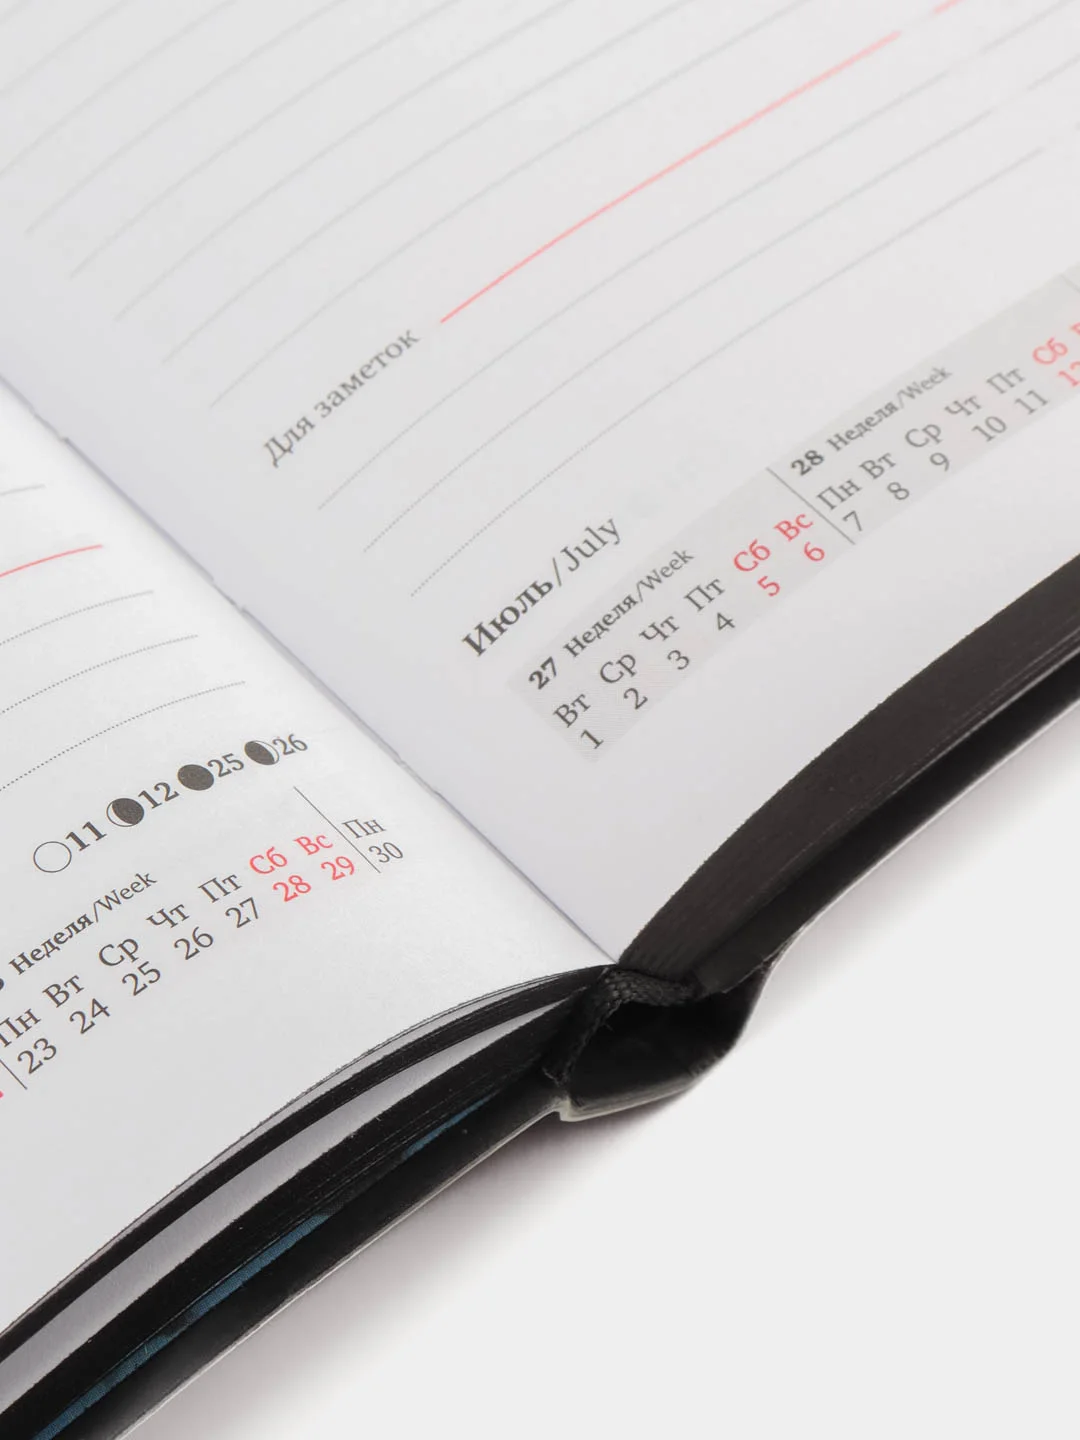 11 12 25 26
Неделя/Week
Пн Вт Ср Чт Пт Сб Вс Пн
23 24 25 26 27 28 29 30
Для заметок
Июль/July
27 Неделя/Week 28 Неделя/Week
Вт Ср Чт Пт Сб Вс Пн Вт Ср Чт Пт Сб
1 2 3 4 5 6 7 8 9 10 11 12